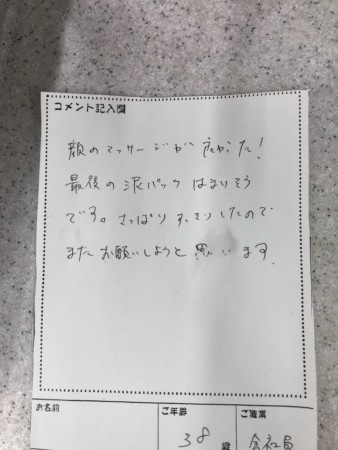 コメント記入欄
顔のマッサージが良かった!
最後の泥パックはまりそう
です。さっぱりすっきりしたので
またお願いしようと思います。
お名前
ご年齢
ご職業
38
歳
会社員